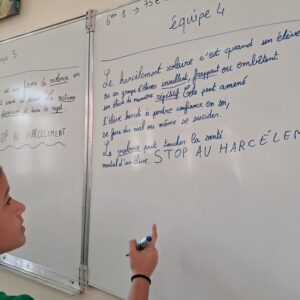 équipe 4
Le harcèlement scolaire c'est quand un élève
ou un groupe d'élèves insultent, frappent ou embêtent
un élève de manière répétitif. Cela peut amené
l'élève harcelé à perdre confiance en soi,
se faire du mal ou même se suicider.
La violence peut toucher la santé
mental d'un élève. STOP AU HARCÈLEM
équipe 3
violence
victime
STOP AU HARCÈLEMENT